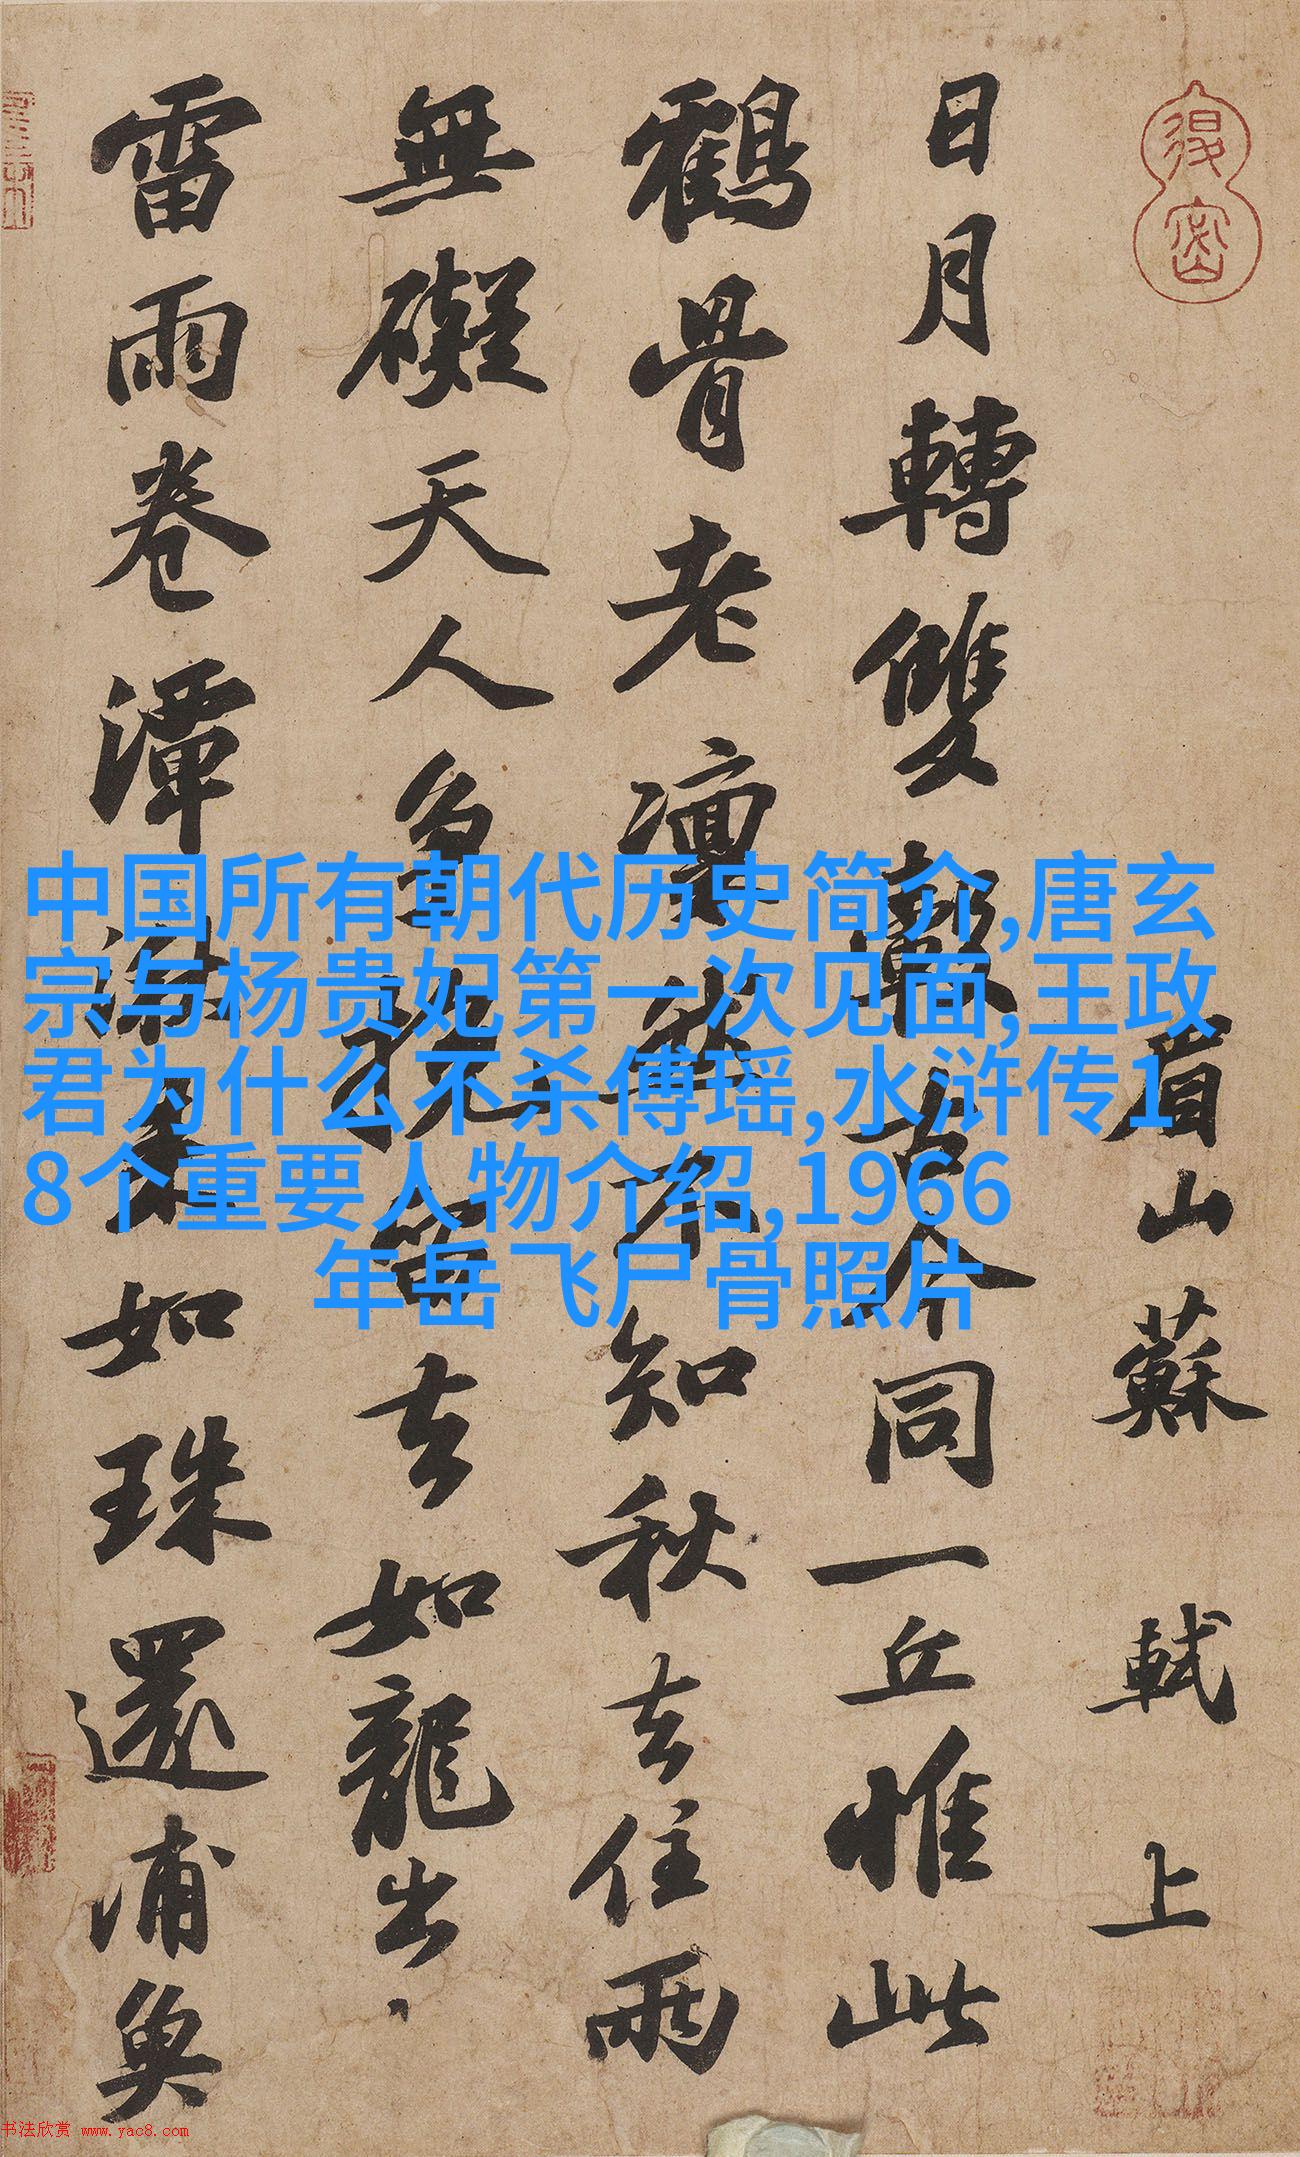 眉山蘇軾上
日月轉雙轂古今同一丘惟此
鶴骨老凜然不知秋去住兩
無礙天人爭挽留去如龍出
雷雨卷潭湫來如珠還浦魚
中国所有朝代历史简介,唐玄
宗与杨贵妃第一次见面,王政
君为什么不杀傅瑶,水浒传1
8个重要人物介绍,1966
年岳飞尸骨照片
书法欣赏 www.yac8.com